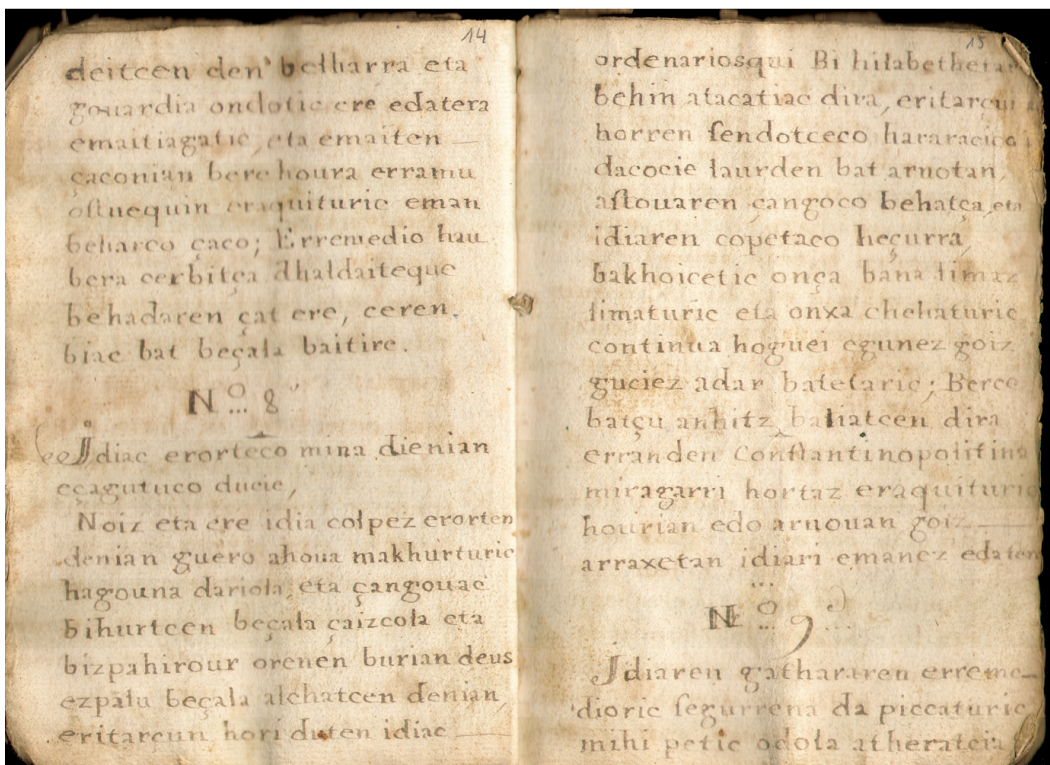 14
deitcen den belharra eta
gouardia ondotic ere edatera
emaitiagatic, eta emaiten
çaconian bere houra erramu
ostuequin eraquituric eman
beharco çaco; Erremedio hau
bera cerbitça dhaldaiteque
behadaren çat ere, ceren.
biac bat beçala baitire.
N.º 8
Idiac erorteco mina dienian
eçagutuco ducie,
Noiz eta ere idia colpez erorten
denian guero ahoua makhurturic
hagouna dariola, eta çangouac
bihurtcen beçala çaizcola eta
bizpahirour orenen burian deus
ezpalu beçala alchatcen denian,
eritarçun hori duten idiac
15
ordenariosqui Bi hilabethetan
behin atacatiac dira, eritarçun
horren sendotceco hararacico
dacocie laurden bat arnotan,
astouaren çangoco behatça, eta
idiaren copetaco heçurra,
bakhoicetic onça bana limaz
limaturic eta onxa chehaturic
continua hoguei egunez goiz
guciez adar batetaric; Berce
batçu anhitz baliatcen dira
erranden Constantinopolitina
miragarri hortaz eraquituric
hourian edo arnouan goiz
arraxetan idiari emanez edaten
N.º 9
Idiaren gathararen erreme-
dioric segurrena da piccaturic
mihi petic odola atheratcia